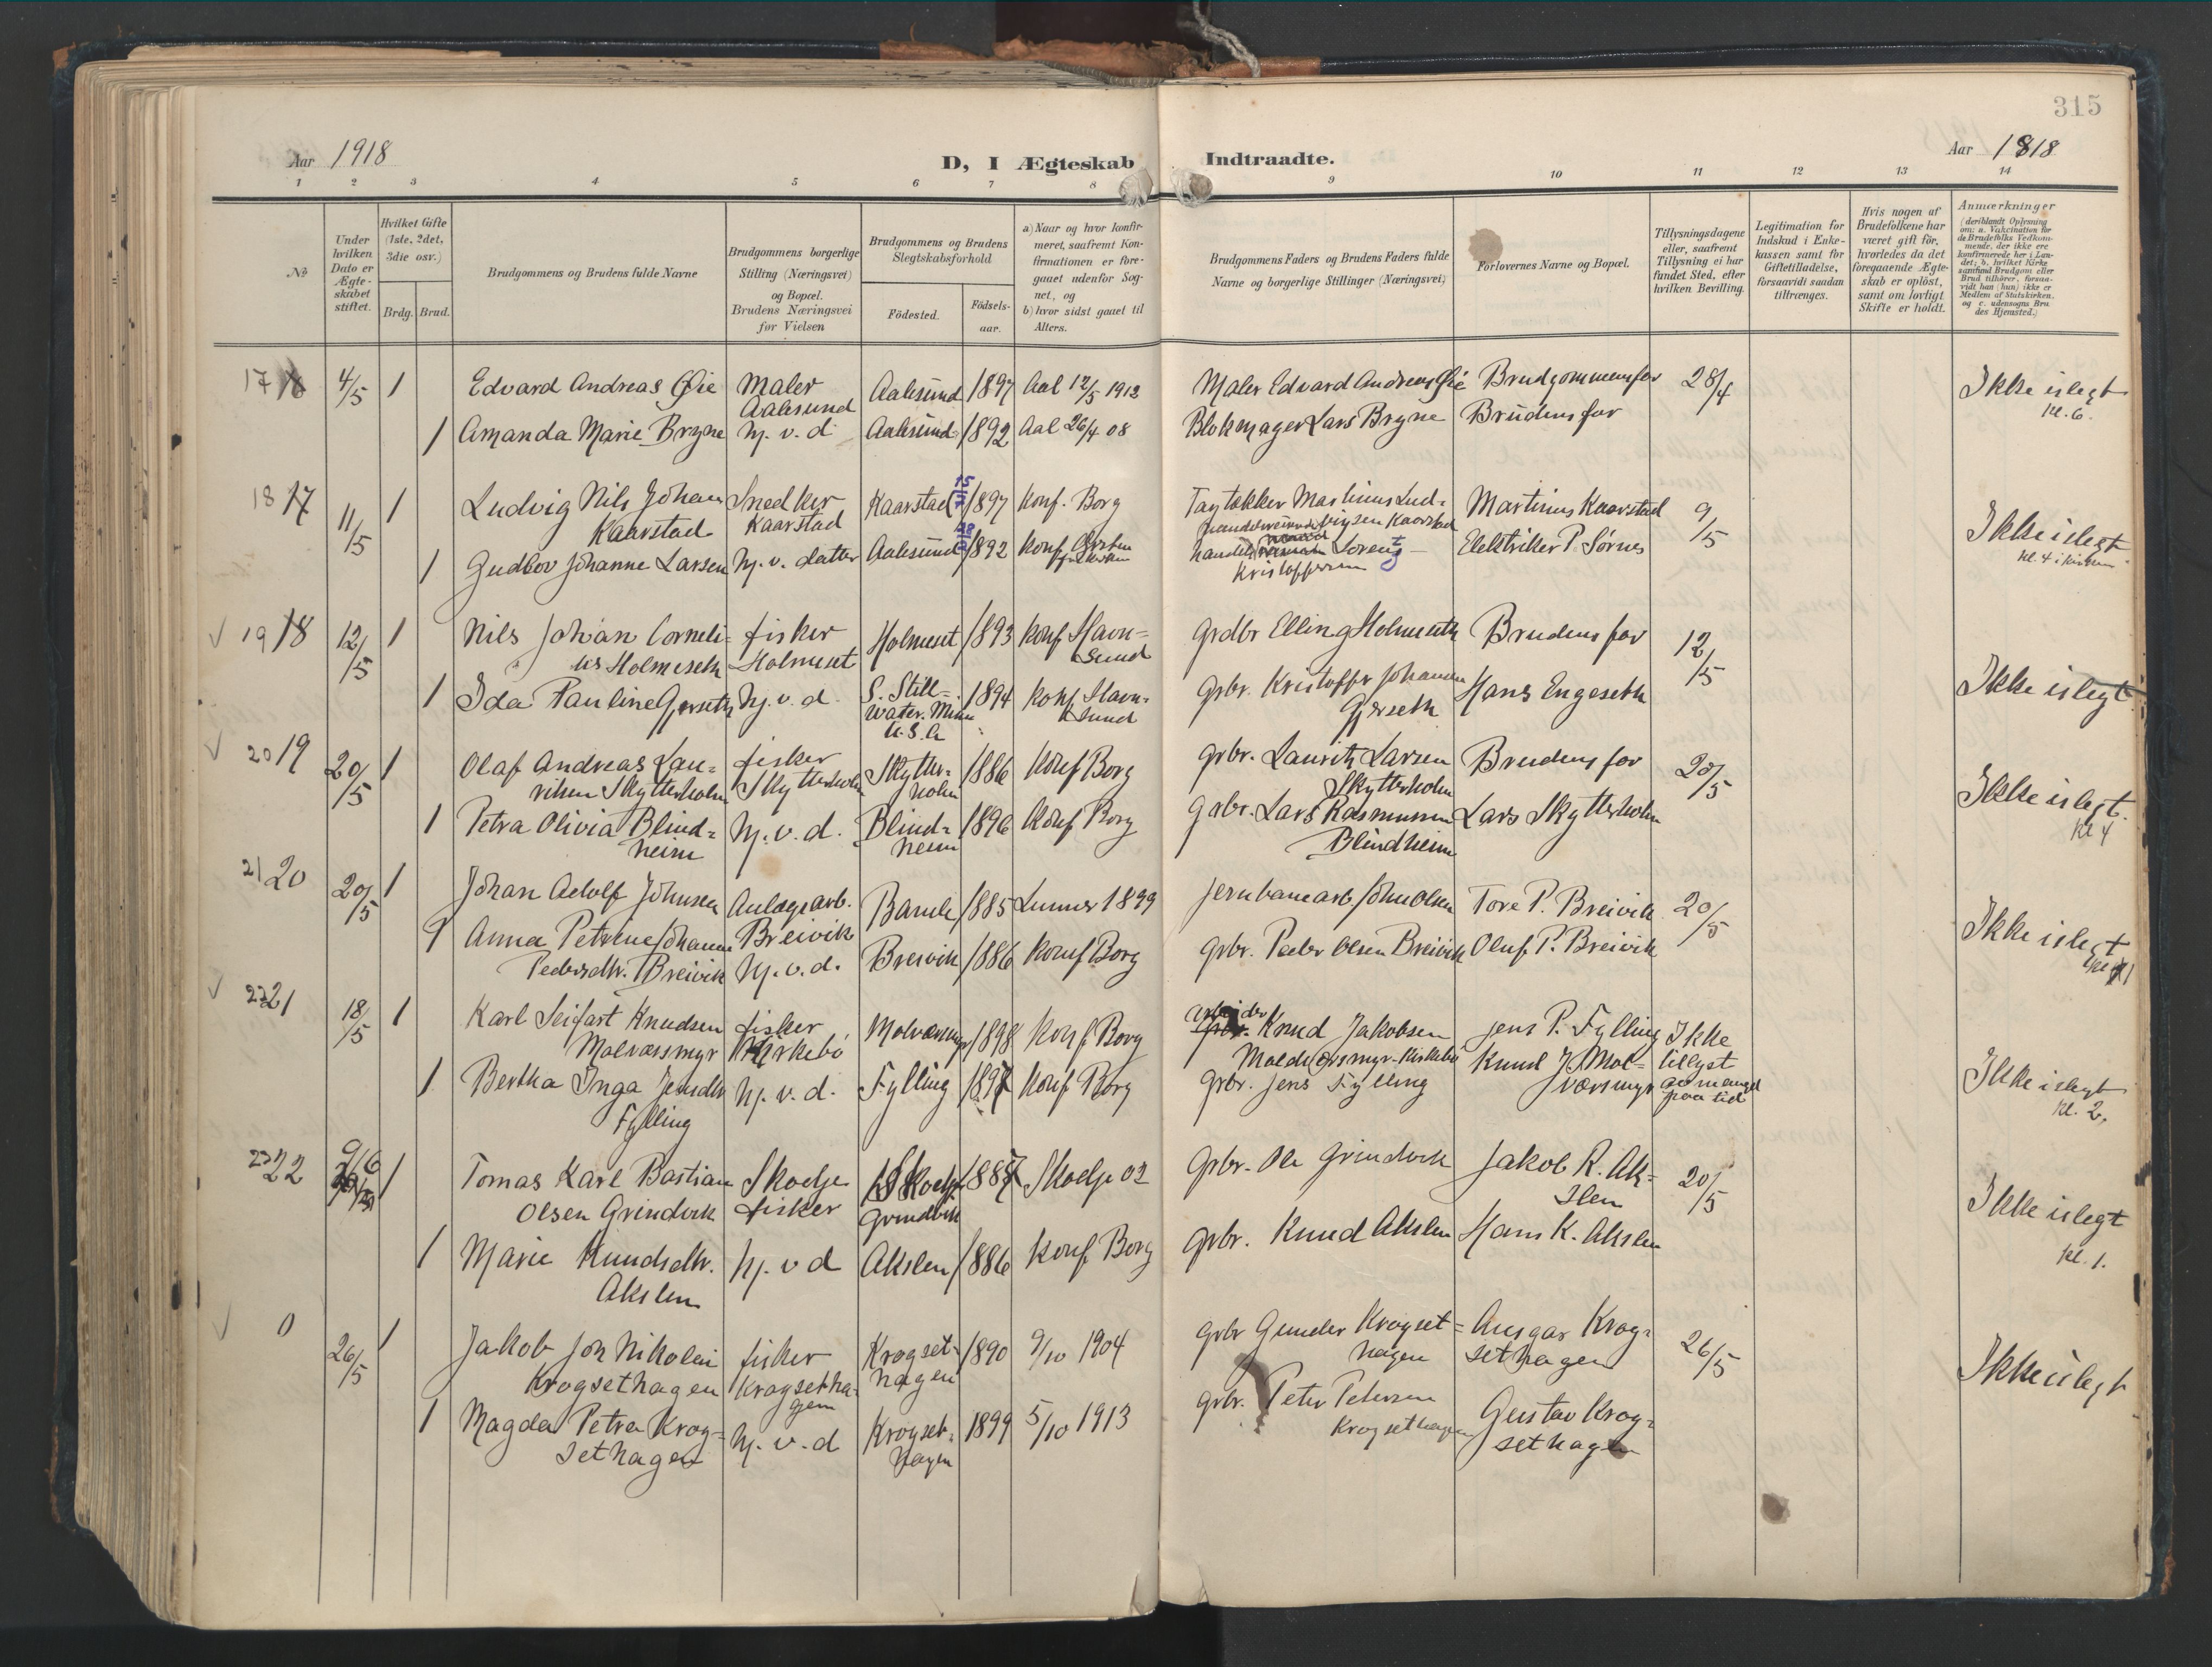 315
Aar 1918
D, I Ægteskab Indtraadte.
Aar 1818
1 2 3 4 5 6 7 8 9 10 11 12 13 14
No
Under hvilken Dato er Ægte-skabet stiftet.
Hvilket Gifte (1ste, 2det, 3die osv.)
Brdg. Brud.
Brudgommens og Brudens fulde Navne
Brudgommens borgerlige Stilling (Næringsvei) og Bopæl. Brudens Næringsvei før Vielsen
Brudgommens og Brudens Slegtskabsforhold
Födested.
Födsels-aar.
a) Naar og hvor konfir-meret, saafremt Kon-firmationen er fore-gaaet udenfor Sog-net, og b) hvor sidst gaaet til Alters.
Brudgommens Faders og Brudens Faders fulde Navne og borgerlige Stillinger (Næringsvei)
Forlovernes Navne og Bopæl.
Tillysningsdagene eller, saafremt Tillysning ei har fundet Sted, efter hvilken Bevilling.
Legitimation for Indskud i Enke-kassen samt for Giftetilladelse, forsaavidt saadan tiltrænges.
Hvis nogen af Brudefolkene har været gift för, hvorledes da det foregaaende Ægte-skab er oplöst, samt om lovligt Skifte er holdt.
Anmærkninger (deriblandt Oplysning om: a. Vakcination for de Brudefolks Vedkom-mende, der ikke ere konfirmerede her i Lan-det; b. hvilket Kirke samfund Brudgom eller Brud tilhörer, forsaa-vidt han (hun) ikke er Medlem af Statskirken, og c. udensogns Bru des Hjemsted.)
17 4/5 1 Edvard Andreas Øie Maler Aalesund Aalesund 1897 Aal 12/5 1912 Maler Edvard Andreas Øie Brudgommens far 28/4 Ikke i slegt kl. 6.
1 Amanda Marie Bryne hj. v. d. Aalesund 1892 Aal 26/4 08 Blokmager Lars Bryne Brudens far
18 17 11/5 1 Ludvig Nils Johan Kaarstad Snedker Kaarstad Kaarstad 1897 konf. Borg Tagtækker Martinus Lud= vigsen Kaarstad Martinus Kaarstad 9/5 Ikke i slegt kl. 4 i kirken
1 Gudlov Johanne Larsen hj. v. datter Aalesund 1892 konf Lorentz Kristoffersen Elektriker P. Sørnes
19 18 12/5 1 Nils Johan Corneli= us Holmeseth fisker Holmeset Holmeset 1893 konf Havn= sund grdbr Elling Holmeseth Brudens far 12/5 Ikke i slegt
1 Ida Pauline Gjerseth hj. v. d. S. Still= water. Minn U.S.A 1894 konf Havn= sund grbr. Kristoffer Johansen Gjerseth Hans Engeseth
20 19 20/5 1 Olaf Andreas Lau= ritsen Skytterholm fisker Skytterholm Skytter= holm 1886 konf Borg grbr. Laurits Larsen Skytterholm Brudens far 20/5 Ikke i slegt. kl 4
1 Petra Olivia Blind= heim hj. v. d. Blind= heim 1896 konf Borg grbr. Lars Rasmussen Blindheim Lars Skytterholm
21 20 20/5 1 Johan Adolf Johnsen Anlægsarb. Breivik Bamle 1885 Lunner 1899 jernbanearb. John Olsen Tore P. Breivik 20/5 Ikke i slegt
1 Anna Petrine Johanne Pedersdtr. Breivik hj. v. d. Breivik 1886 konf Borg grbr. Peder Olsen Breivik Oluf P. Breivik
22 21 18/5 1 Karl Seifart Knudsen Molværsmyr fisker Kirkebø Molværsmyr 1898 konf Borg arbeider Knud Jakobsen Moldværsmyr - Kirkebø Jens P. Fylling Ikke tillyst av mangel paa tid Ikke i slegt kl. 2.
1 Bertha Inga Jensdtr Fylling hj. v. d. Fylling 1897 konf Borg grbr. Jens Fylling Knud J. Mol= værsmyr
23 22 9/6 1 Tomas Karl Bastian Olsen Grindvik Skodje fisker Skodje Grindvik 1887 Skodje 02 grbr. Ole Grindvik Jakob R. Ak= slen 20/5 Ikke i slegt kl. 1.
1 Marie Knudsdtr. Akslen hj. v d Akslen 1886 konf Borg grbr. Knud Akslen Hans K. Akslen
0 26/5 1 Jakob Jon Nikolai Krogsethagen fisker Krogsetha= gen Krogset= hagen 1890 9/10 1904 grbr Gunder Krogset= hagen Ansgar Krog= sethagen 26/5 Ikke i slegt
1 Magda Petra Krog= sethagen hj. v. d Krogset= hagen 1899 5/10 1913 grbr. Peter Petersen Krogsethagen Gustav Krog= sethagen